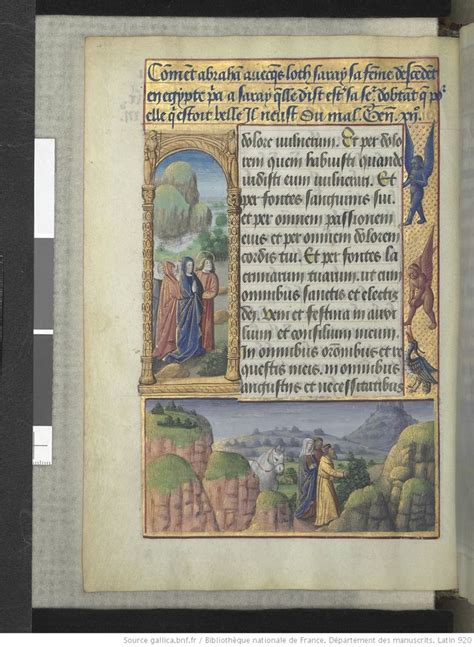 Com̃ent abrahã avecq̃s loth saray sa feme descẽdẽt
en egypte p̃a a saray q̃lle dist est̃ sa seʳ dobtãt q̃ poʳ
elle q̃ estoit belle Il neust du mal. Gen. xij.
dolore vulnerum. Et per dolo
rem quem habuisti quando
vidisti eum vulneratũ. Et
per fontes sanguinis sui.
et per omnem passionem
eius et per omnem dolorem
cordis tui. Et per fontes la
crimarum tuarum. ut cum
omnibus sanctis et electis
dei. Veni et festina in auxi
lium et consilium meum.
In omnibus orõnibus et re
questis meis. in omnibus
angustiis et necessitatibus
Source gallica.bnf.fr / Bibliothèque nationale de France, Département des manuscrits, Latin 920